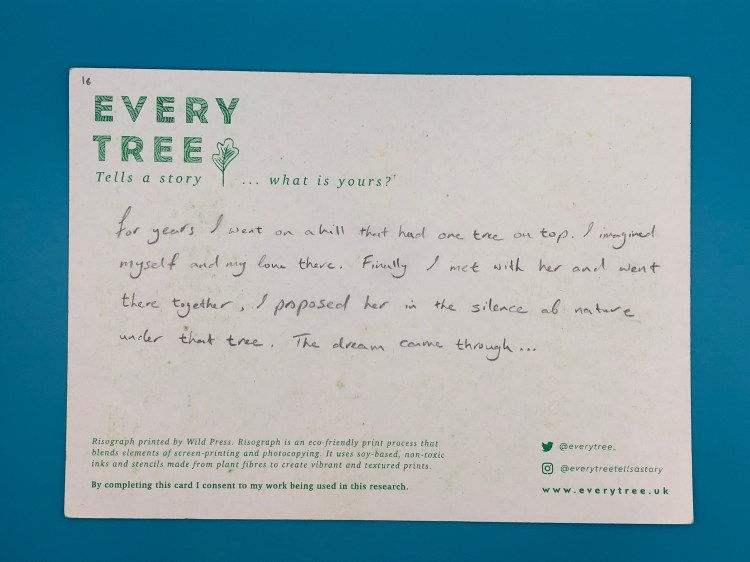 18
EVERY
TREE
Tells a story ... what is yours?
for years I went on a hill that had one tree on top. I imagined
myself and my love there. Finally I met with her and went
there together, I proposed her in the silence of nature
under that tree. The dream came through...
Risograph printed by Wild Press. Risograph is an eco-friendly print process that
blends elements of screen-printing and photocopying. It uses soy-based, non-toxic
inks and stencils made from plant fibres to create vibrant and textured prints.
By completing this card I consent to my work being used in this research.
@everytree_
@everytreetellsastory
www.everytree.uk